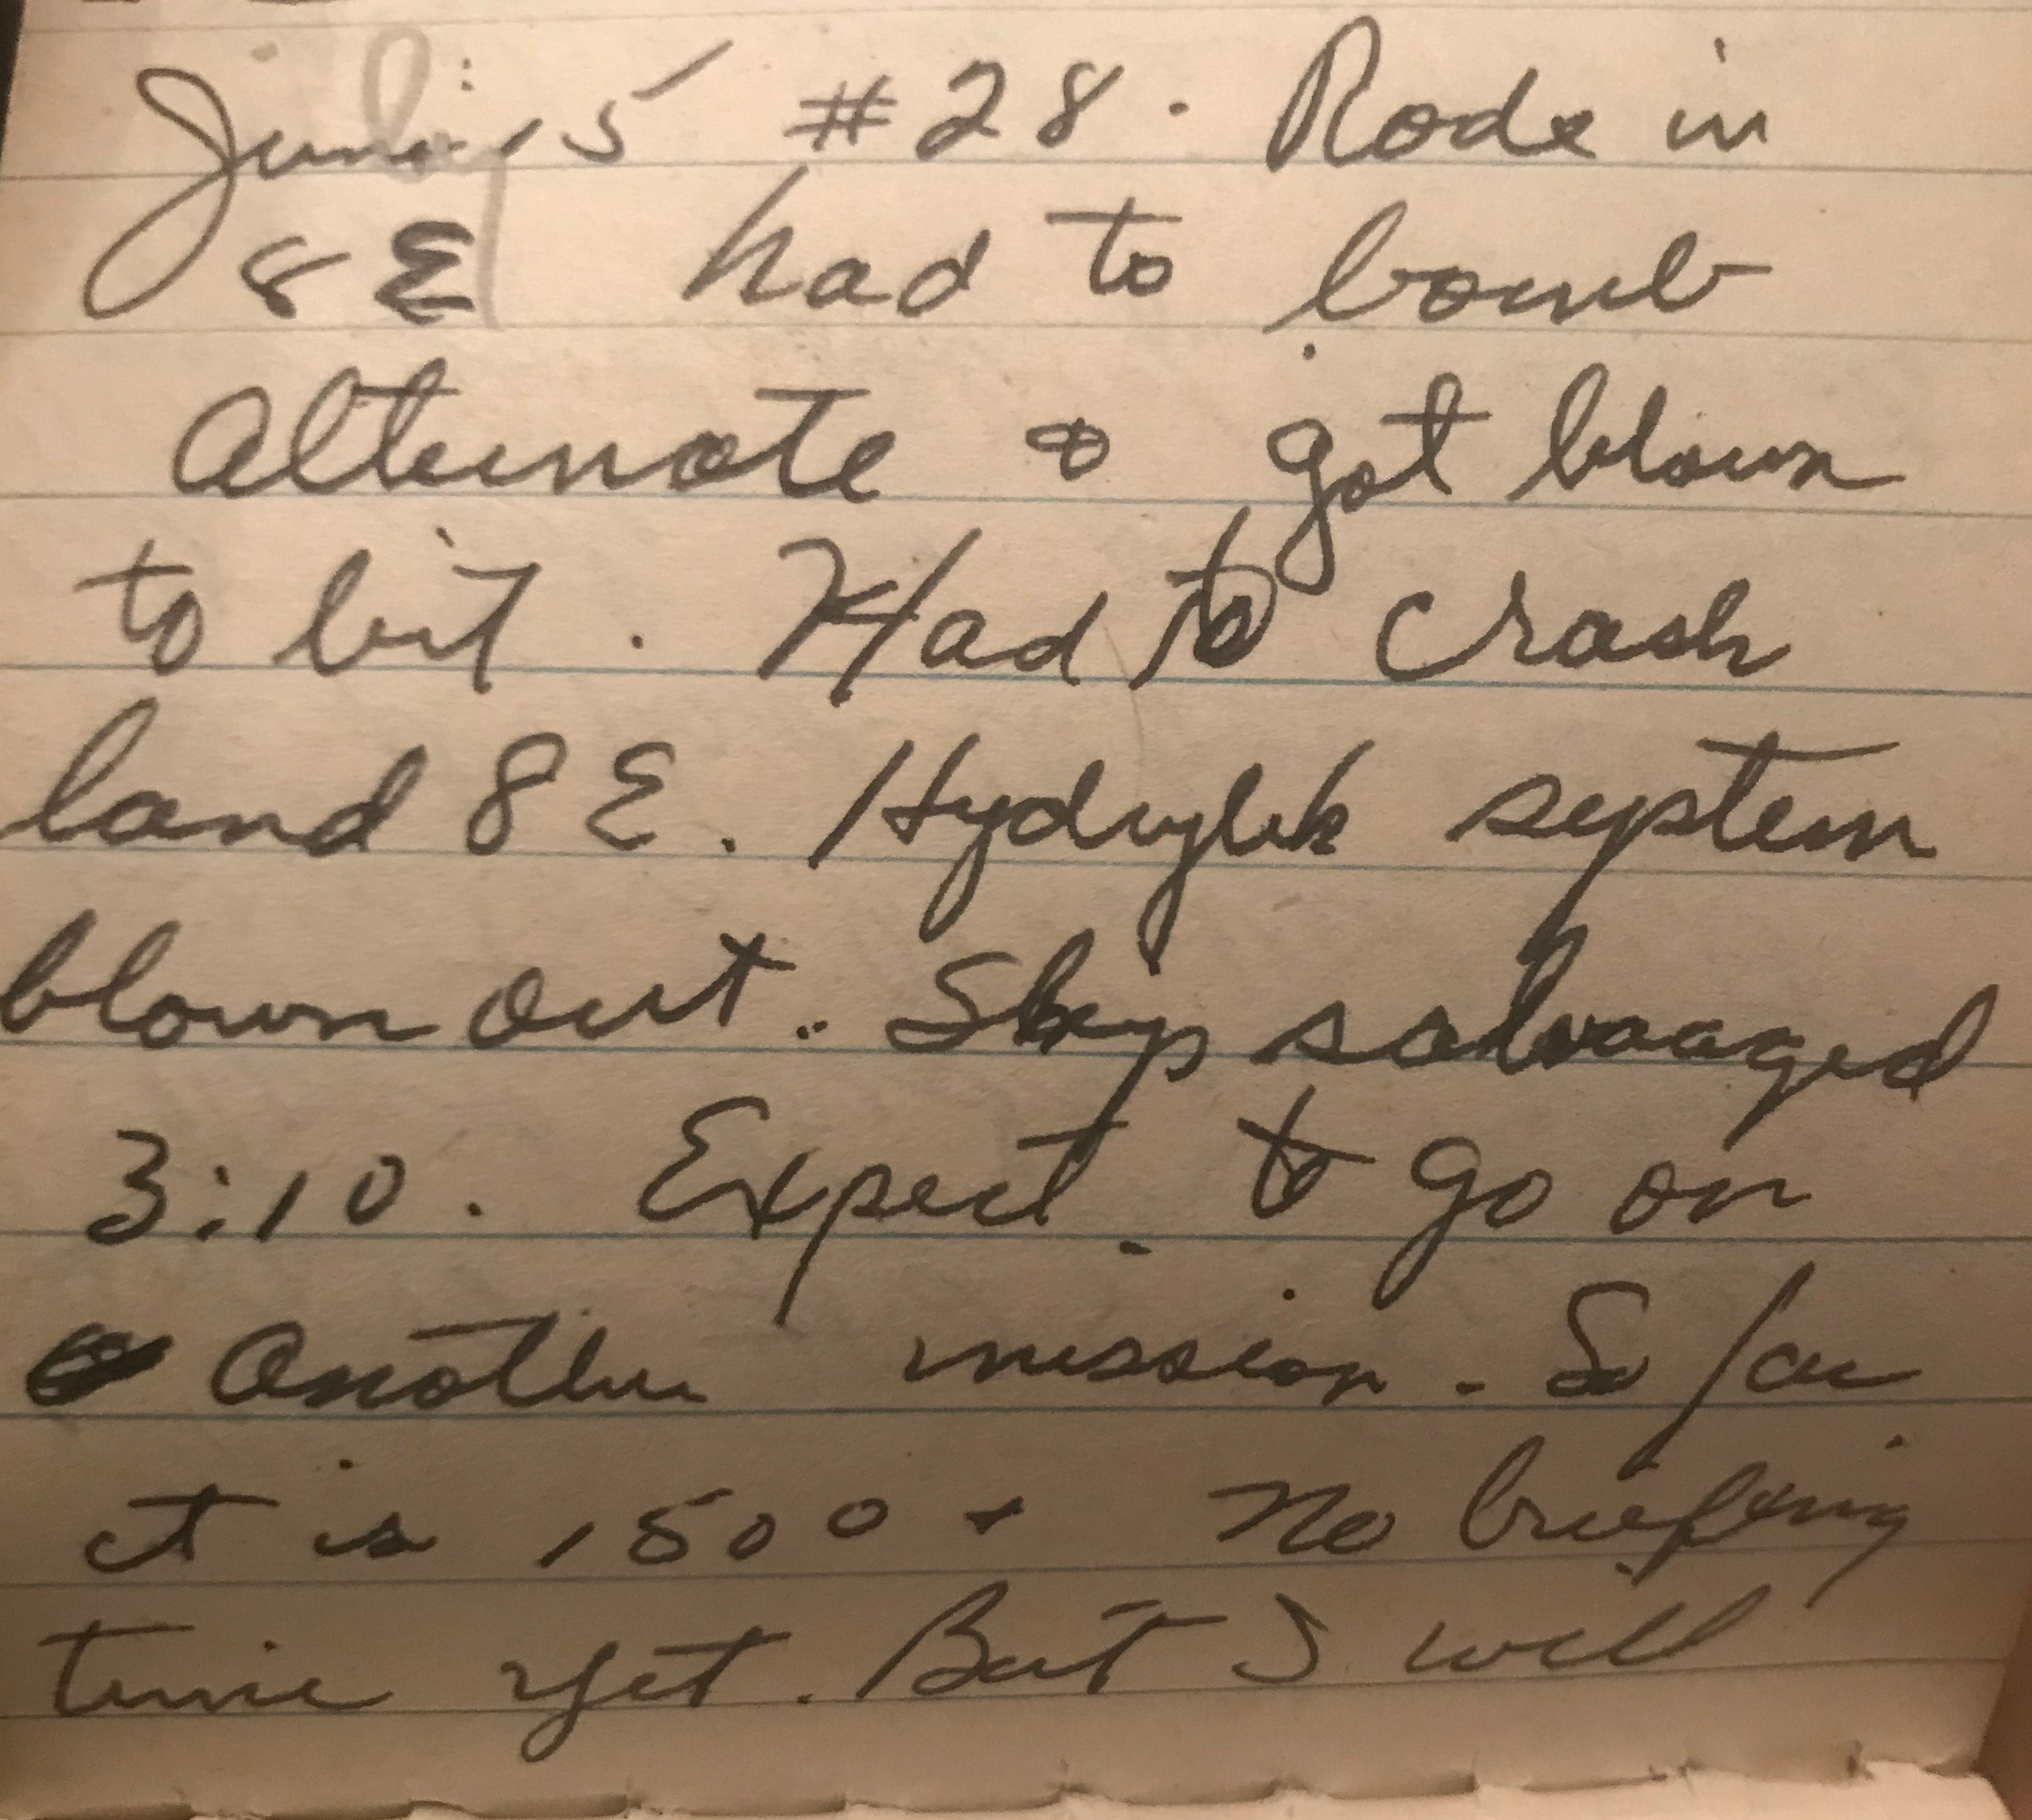 June 15 #28. Rode in
8E had to bomb
alternate & got blown
to bit. Had to crash
land 8E. Hydrylik system
blown out. Ship salvaaged
3:10. Expect to go on
another mission. So far
it is 1500 + No briefing
time yet. But I will